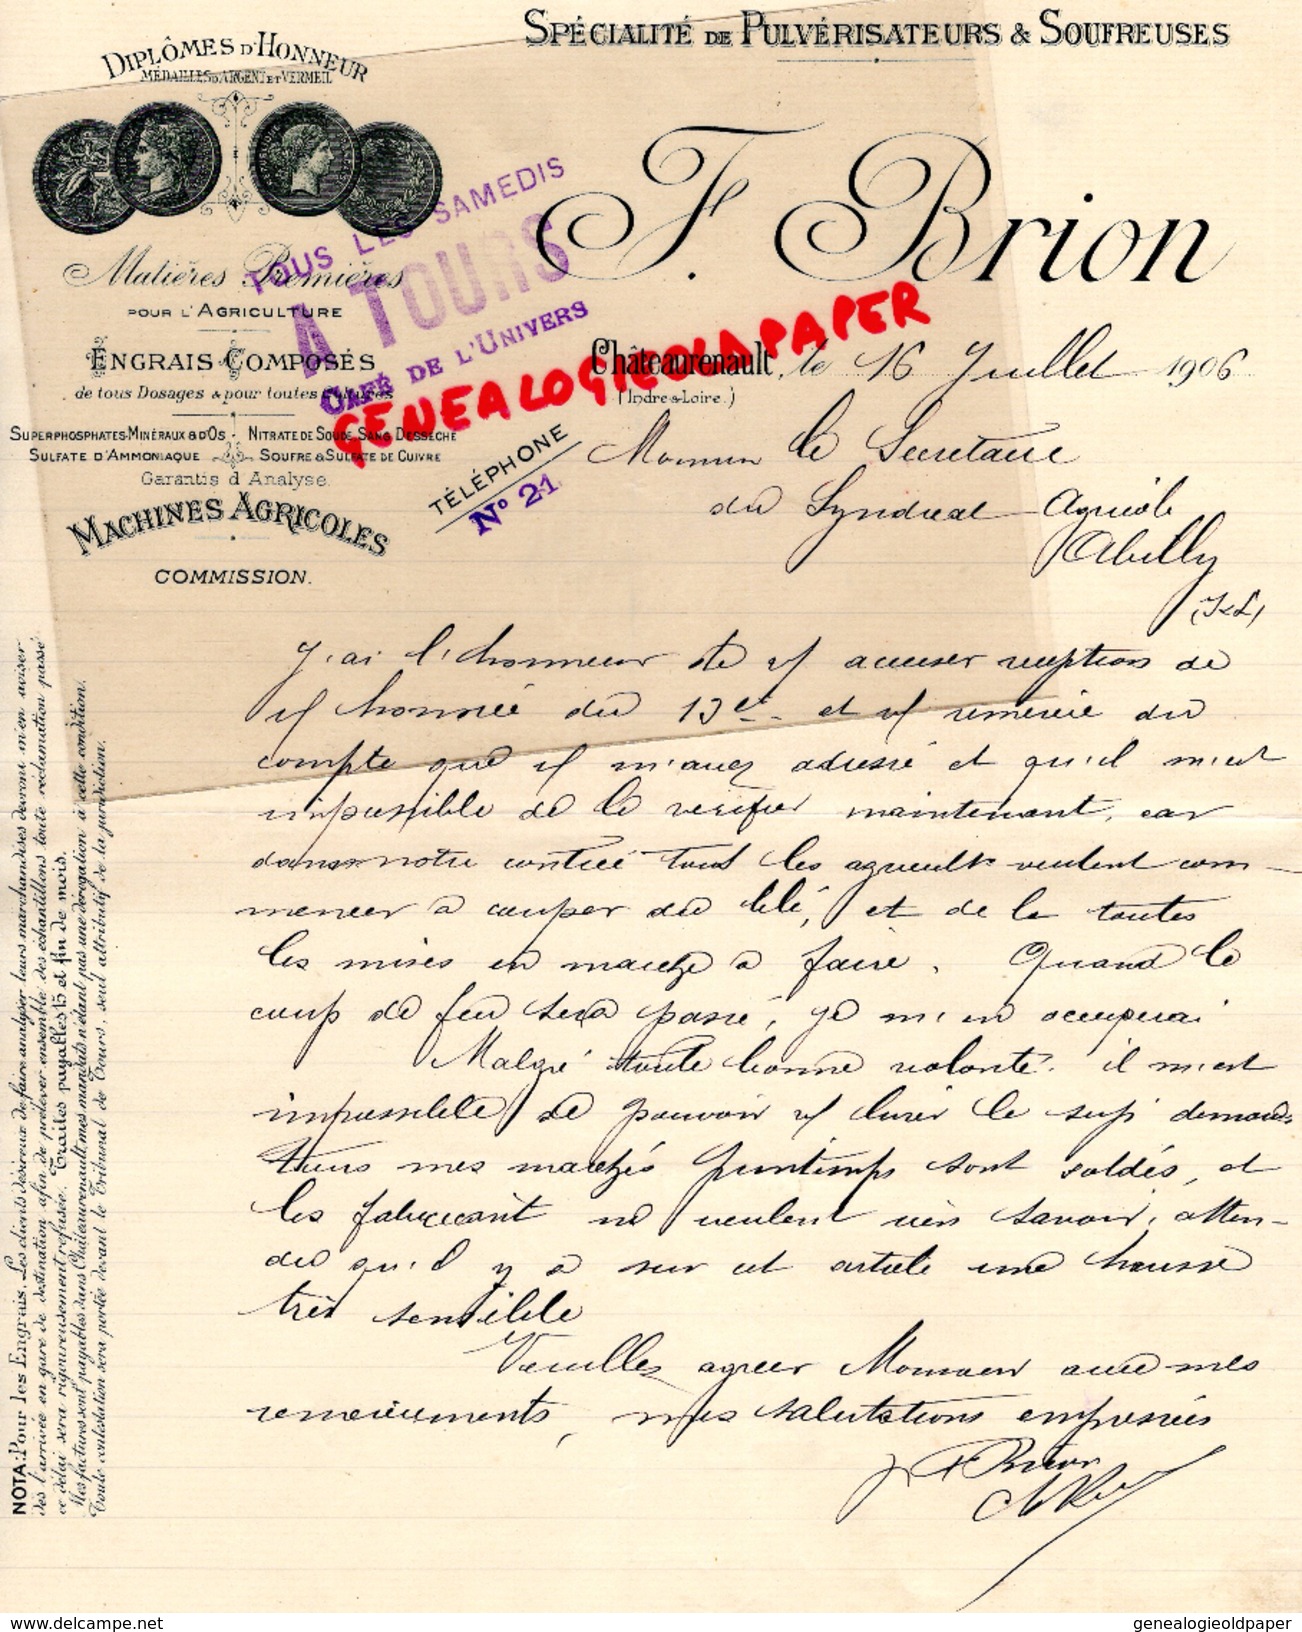 SPÉCIALITÉ DE PULVÉRISATEURS & SOUFREUSES
DIPLÔMES D'HONNEUR
MÉDAILLES D'ARGENT ET VERMEIL
F. Brion
TOUS LES SAMEDIS
A TOURS
CAFÉ DE L'UNIVERS
Matières Premières
POUR L'AGRICULTURE
ENGRAIS COMPOSÉS
de tous Dosages & pour toutes Cultures
SUPERPHOSPHATES MINÉRAUX & D'OS - NITRATE DE SOUDE SANG DESSÉCHÉ
SULFATE D'AMMONIAQUE SOUFRE & SULFATE DE CUIVRE
Garantis d'Analyse
MACHINES AGRICOLES
COMMISSION.
TÉLÉPHONE
N° 21
GENEALOGIEOLDPAPER
Châteaurenault, le 16 Juillet 1906
(Indre & Loire.)
Monsieur le Secrétaire
du Syndicat Agricole
Abilly
(I & L)
J'ai l'honneur de vs accuser reception de
vs honnée du 13 ct et vs remercie du
compte que vs m'avez adressé et qu'il m'est
impossible de le verifier maintenant, car
dans notre contrée tous les agricult^rs veulent com-
mencer a couper du blé, et de la toutes
les mises en marche a faire. Quand le
coup de feu sera passé, je m'en occuperai
Malgré toute bonne volonté. il m'est
impossible de pouvoir vs livrer le sup demandé
tous mes marchés printemps sont soldés, et
les fabricant ne veulent rien savoir, atten-
du qu'il y a sur cet article une hausse
très sensible
Veuillez agreer Monsieur avec mes
remerciements, mes salutations empressées
F Brion
NOTA: Pour les Engrais. Les clients désireux de faire analyser leurs marchandises devront m'en aviser
dès l'arrivée en gare de destination, afin de prélever ensemble des échantillons, toute réclamation passé
ce délai sera rigoureusement refusée. Traites payables 15 et fin de mois.
Mes factures sont payables dans Châteaurenault, mes mandats n'étant pas une dérogation à cette condition.
Toute contestation sera portée devant le Tribunal de Tours, seul attributif de la juridiction.
www.delcampe.net
genealogieoldpaper